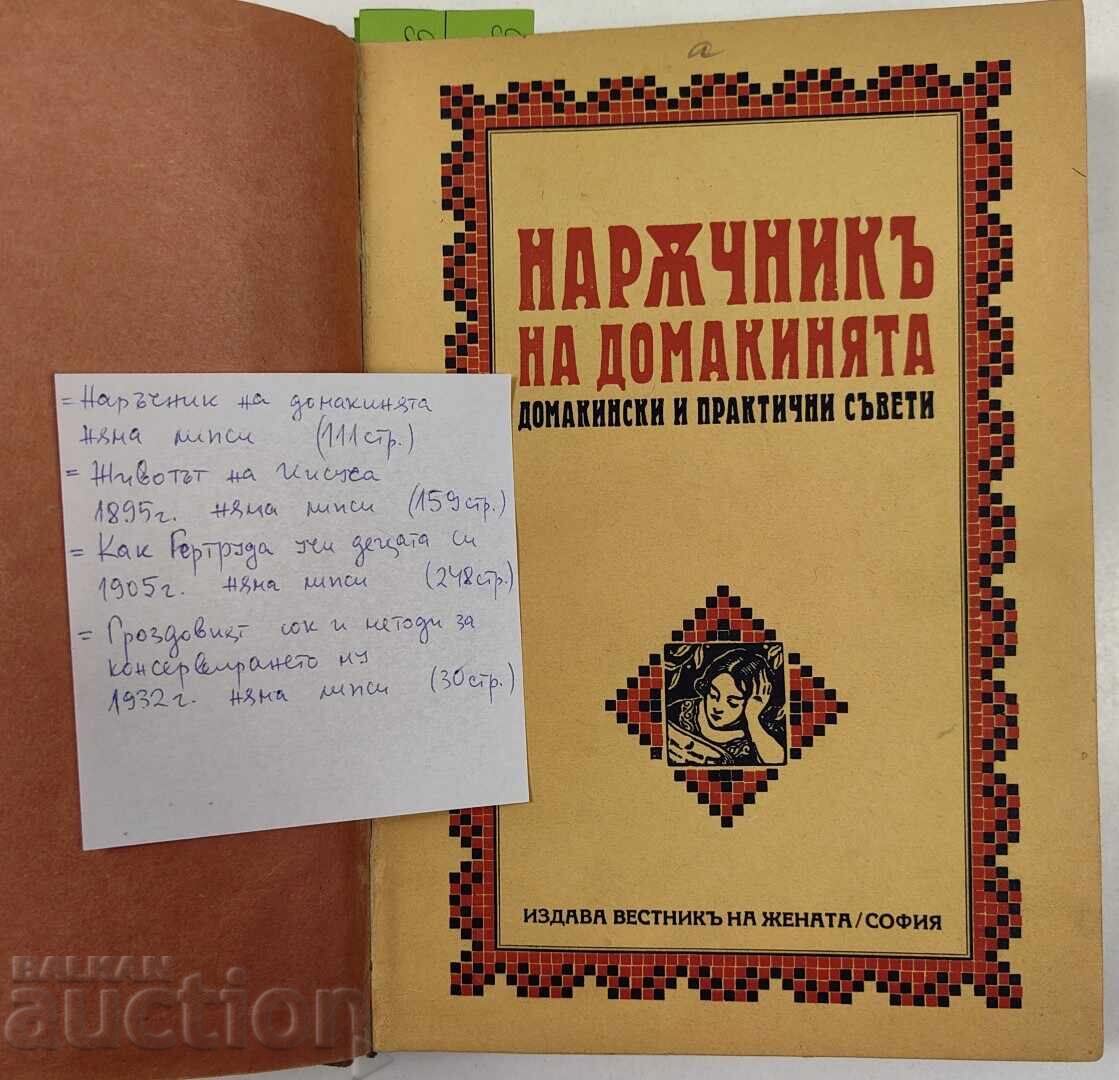 = Наръчник на домакинята
няма липси (111 стр.)
= Животът на Исуса
1895 г. няма липси (159 стр.)
= Как Гертруда учи децата си
1905 г. няма липси (248 стр.)
= Гроздовият сок и методи за
консервирането му
1932 г. няма липси (30 стр.)
а
НАРѪЧНИКЪ
НА ДОМАКИНЯТА
ДОМАКИНСКИ И ПРАКТИЧНИ СЪВЕТИ
ИЗДАВА ВЕСТНИКЪ НА ЖЕНАТА / СОФИЯ
BALKAN
auction